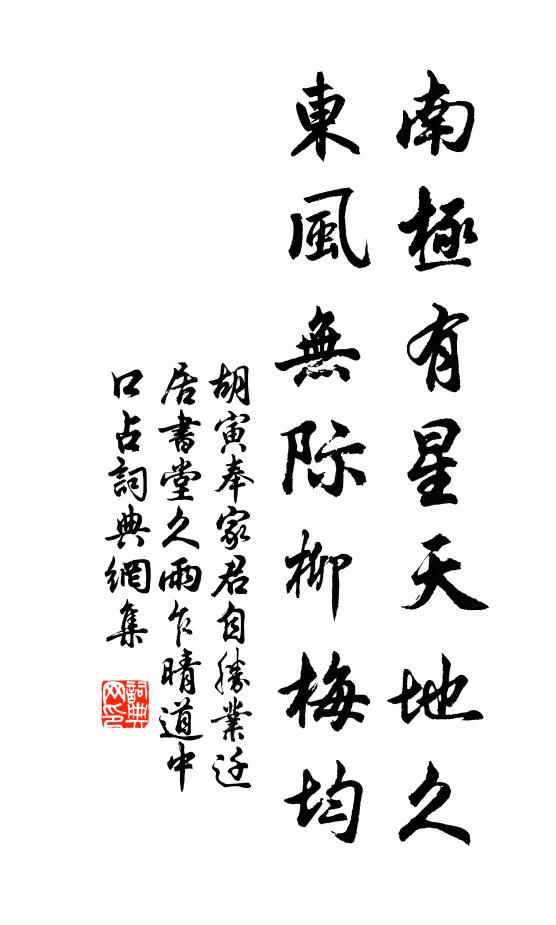 南極有星天地久
東風無际柳梅均
胡寅奉家君自勝業迁
居書堂久雨乍晴道中
口占詞典網集
詞典
网印